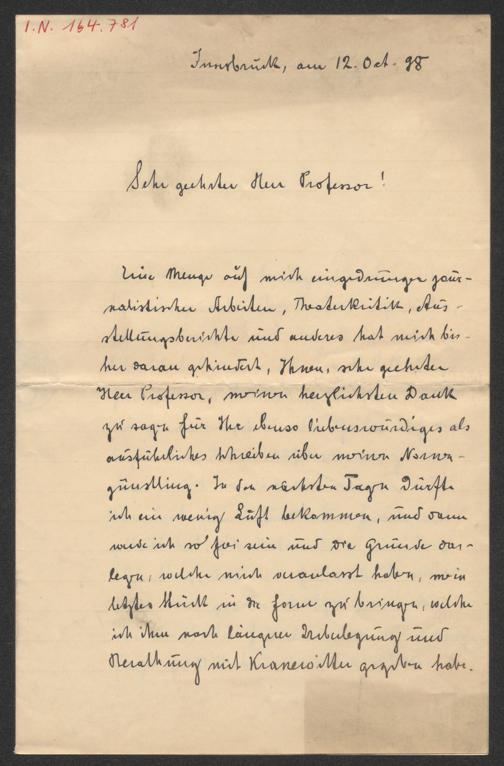 I.N. 164.781
Innsbruck, am 12. Oct. 98
Sehr geehrter Herr Professor!
Eine Menge auf mich eingedrungener jour-
nalistischer Arbeiten, Theaterkritik, Aus-
stellungsberichte und anderes hat mich bis-
her daran gehindert, Ihnen, sehr geehrter
Herr Professor, meinen herzlichsten Dank
zu sagen für Ihr ebenso liebenswürdiges als
ausführliches Schreiben über meinen Nornen-
günstling. In den nächsten Tagen dürfte
ich ein wenig Luft bekommen, und dann
werde ich so frei sein und die Gründe dar-
legen, welche mich veranlasst haben, mein
letztes Stück in die Form zu bringen, welche
ich ihm nach längerer Ueberlegung und
Berathung mit Kranewitter gegeben habe.